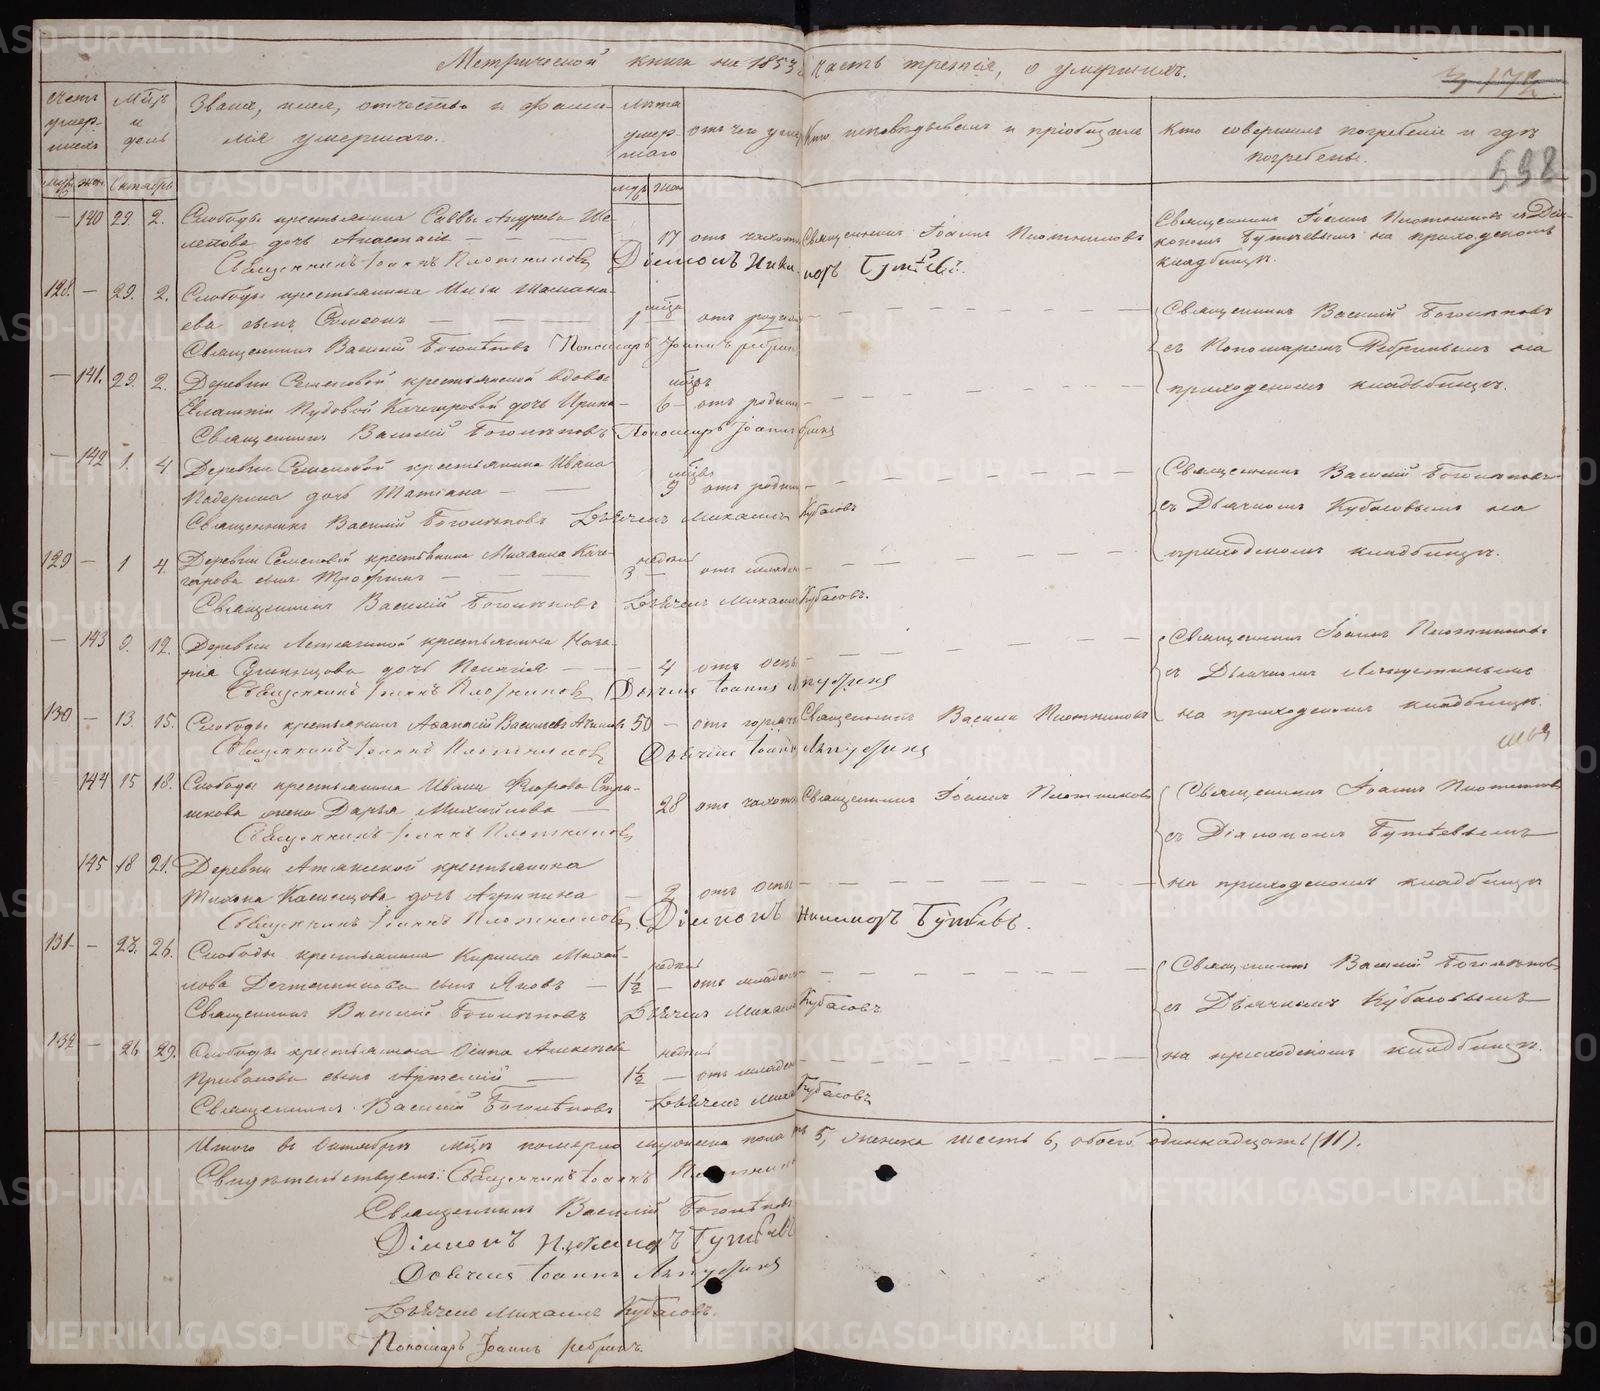 Метрической книги на 1853 часть третiя, о умершихъ.
Счетъ умер-шихъ
Мѣсъ и день
Званiе, имя, отчество и фами-
лiя умершаго.
Лѣта умер-шаго
отъ чего умеръ
Кто исповѣдывалъ и прiобщалъ
Кто совершилъ погребенiе и гдѣ
погребены.
598
муж. жен. Октябрь
140 29. 2. Слободы крестьянина Саввы Андреева Ше-
лепова дочь Анастасiя 17 отъ чахотки Священникъ Iоаннъ Плотниковъ
Священникъ Iоаннъ Плотниковъ Дiаконъ Никаноръ Бутѣевъ.
Священникъ Iоаннъ Плотниковъ съ Дiа-
кономъ Бутѣевымъ на приходскомъ
кладбищѣ.
128. 29. 2. Слободы крестьянина Ильи
сынъ Симеонъ 1 отъ родимца
Священникъ Василiй Боголѣповъ Пономарь Iоаннъ Ребринъ
Священникъ Василiй Боголѣповъ
съ Пономаремъ Ребринымъ на
приходскомъ кладбищѣ.
141. 29. 2. Деревни Семеновой крестьянской вдовы
Пудовой Качегаровой дочь Ирина 6 отъ родимца
Священникъ Василiй Боголѣповъ Пономарь Iоаннъ Ребринъ
142 1. 4 Деревни Семеновой крестьянина Ивана
Падерина дочь Татiана 3 отъ родимца
Священникъ Василiй Боголѣповъ Дьячекъ Михаилъ Кубасовъ
Священникъ Василiй Боголѣповъ
съ Дьячкомъ Кубасовымъ на
приходскомъ кладбищѣ.
129 1 4. Деревни Семеновой крестьянина Михаила Каче-
гарова сынъ Трофимъ 3 недѣли отъ младен
Священникъ Василiй Боголѣповъ Дьячекъ Михаилъ Кубасовъ.
143 9. 12. Деревни крестьянина
дочь Пелагiя 4 отъ оспы
Священникъ Iоаннъ Плотниковъ Дьячекъ Iоаннъ
Священникъ Iоаннъ Плотниковъ
съ Дьячкомъ
на приходскомъ кладбищѣ.
130 13. 15. Слободы крестьянинъ Аѳанасiй Васильевъ 50 отъ горячки Священникъ Василiй Плотниковъ
Священникъ Iоаннъ Плотниковъ Дьячекъ Iоаннъ
144 15 18. Слободы крестьянина Ивана Ѳедорова
жена Дарья Михайлова 28 отъ чахотки Священникъ Iоаннъ Плотниковъ
Священникъ Iоаннъ Плотниковъ
Священникъ Iоаннъ Плотниковъ
съ Дiакономъ Бутѣевымъ
на приходскомъ кладбищѣ
145 18 21. Деревни крестьянина
Тихона дочь Агрипина 2 отъ оспы
Священникъ Iоаннъ Плотниковъ Дiаконъ Никаноръ Бутѣевъ.
131 23. 26. Слободы крестьянина Кирилла Михай-
лова сынъ Яковъ 1½ недѣли отъ младен
Священникъ Василiй Боголѣповъ Дьячекъ Михаилъ Кубасовъ
Священникъ Василiй Боголѣповъ
съ Дьячкомъ Кубасовымъ
на приходскомъ кладбищѣ.
132 26 29. Слободы крестьянина Осипа Алексѣева
Привалова сынъ Артемiй 1½ недѣли отъ младен
Священникъ Василiй Боголѣповъ Дьячекъ Михаилъ Кубасовъ
Итого въ Октябрѣ мѣсяцѣ померло мужеска пола пять 5, женска шесть 6, обоего одиннадцать (11).
Свидѣтельствуемъ: Священникъ Iоаннъ Плотниковъ
Священникъ Василiй Боголѣповъ
Дiаконъ Никаноръ Бутѣевъ
Дьячекъ Iоаннъ
Дьячекъ Михаилъ Кубасовъ.
Пономарь Iоаннъ Ребринъ.
METRIKI.GASO-URAL.RU